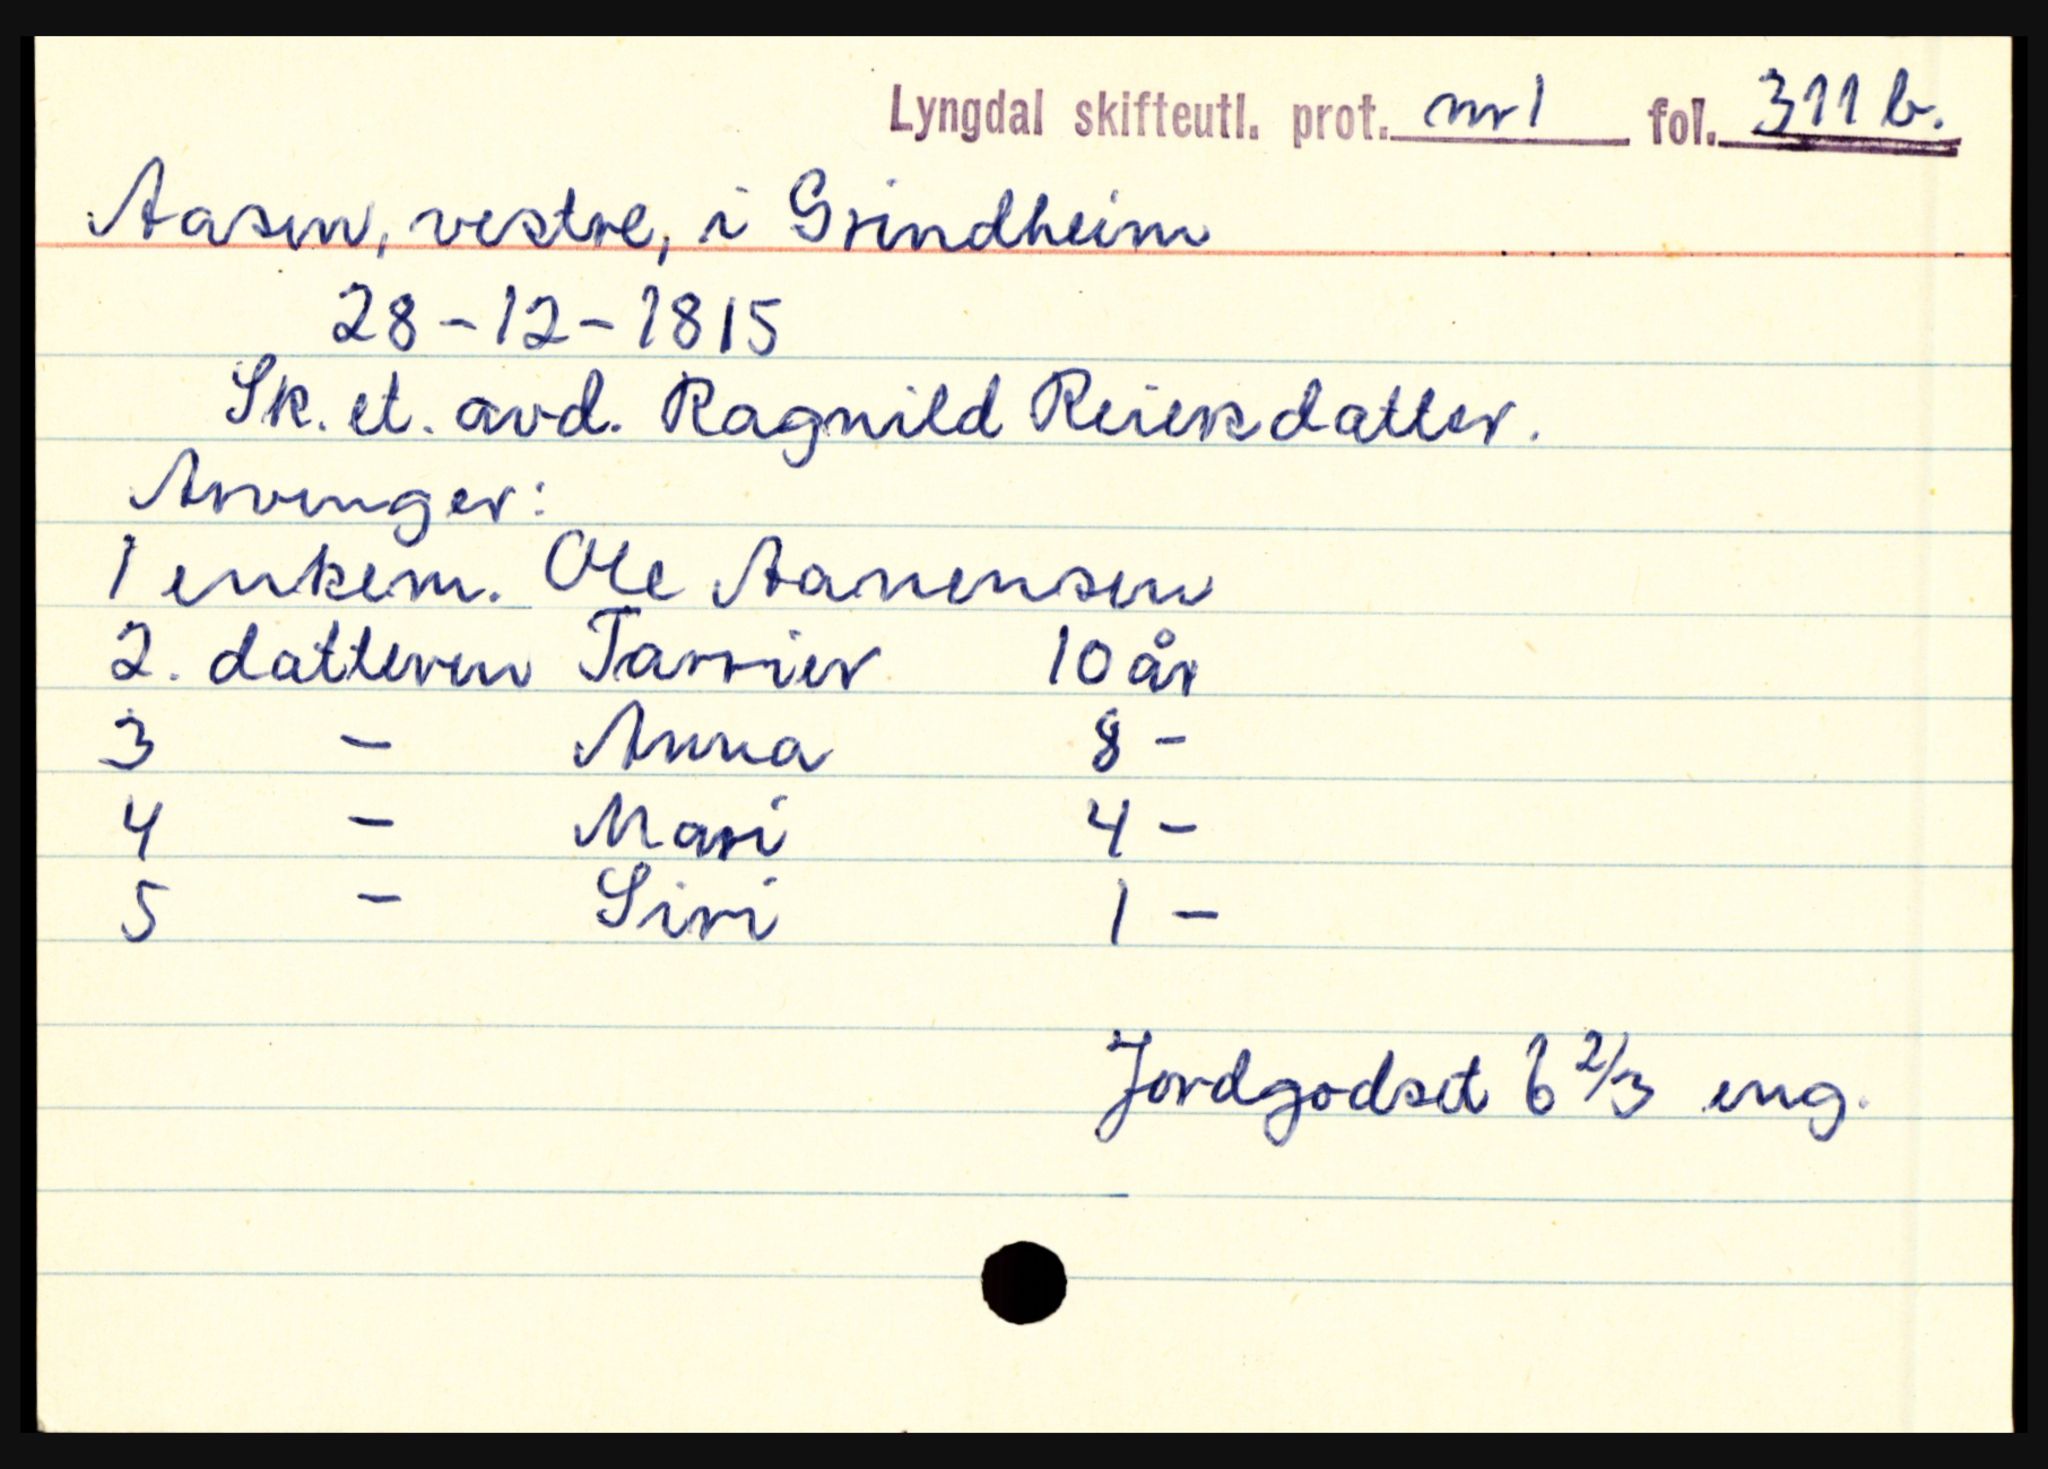 Lyngdal skifteutl. prot. nr 1 fol. 311 b.
Aasen, vestre, i Grindheim
28-12-1815
Sk. et. avd. Ragnild Reiersdatter.
Arvinger:
1 enkem. Ole Aanensen
2. datteren Tarrier 10 år
3 - Anna 8 -
4 - Mari 4 -
5 - Siri 1 -
Jordgodset 6 2/3 eng.